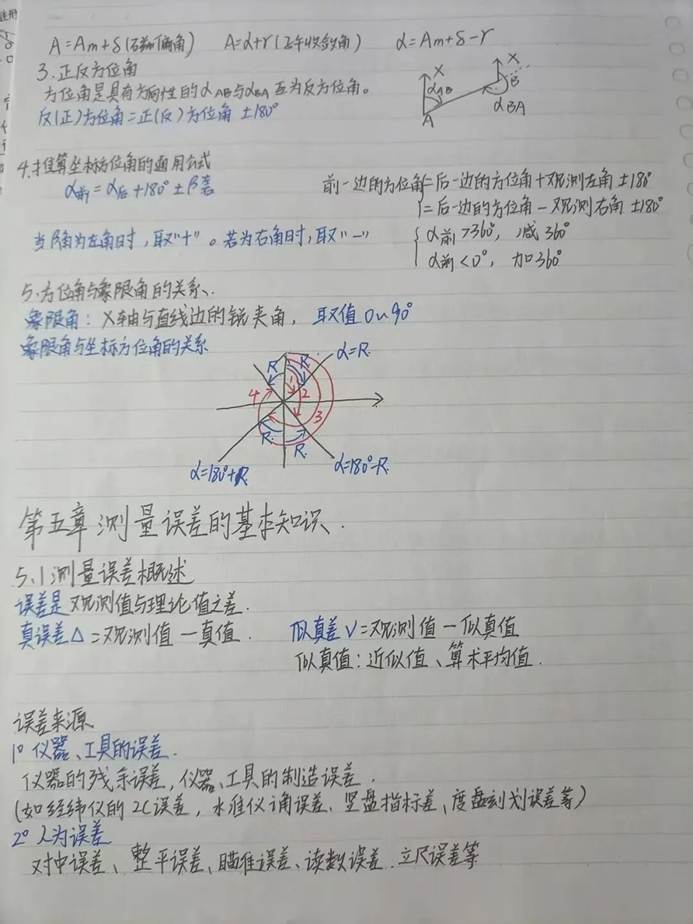 A=Am+δ(磁偏角) A=α+γ(子午收敛角) α=Am+δ-γ
3.正反方位角
方位角是具有方向性的αAB与αBA互为反方位角。
反(正)方位角=正(反)方位角 ±180°
X
αAB
A
X
B
αBA
4.推算坐标方位角的通用公式
α前=α后+180°±β
前一边的方位角=后一边的方位角+观测左角±180°
=后一边的方位角-观测右角±180°
当β角为左角时,取"+"。若为右角时,取"-"
α前>360°, 减360°
α前<0°, 加360°
5.方位角与象限角的关系.
象限角:X轴与直线边的锐夹角, 取值0~90°
象限角与坐标方位角的关系
α=R
R R
4 1 2
3
R R
α=180°+R
α=180°-R
第五章 测量误差的基本知识.
5.1测量误差概述
误差是观测值与理论值之差.
真误差Δ=观测值-真值. 似真差V=观测值-似真值
似真值:近似值、算术平均值.
误差来源
1°仪器、工具的误差.
仪器的残余误差,仪器、工具的制造误差.
(如经纬仪的2C误差,水准仪i角误差、竖盘指标差、度盘刻划误差等)
2°人为误差
对中误差、整平误差、瞄准误差、读数误差.立尺误差等